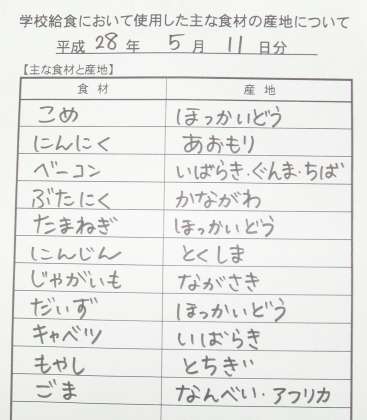 学校給食において使用した主な食材の産地について
平成 28 年 5 月 11 日分
【主な食材と産地】
食材 産地
こめ ほっかいどう
にんにく あおもり
ベーコン いばらき・ぐんま・ちば
ぶたにく かながわ
たまねぎ ほっかいどう
にんじん とくしま
じゃがいも ながさき
だいず ほっかいどう
キャベツ いばらき
もやし とちぎ
ごま なんべい・アフリカ